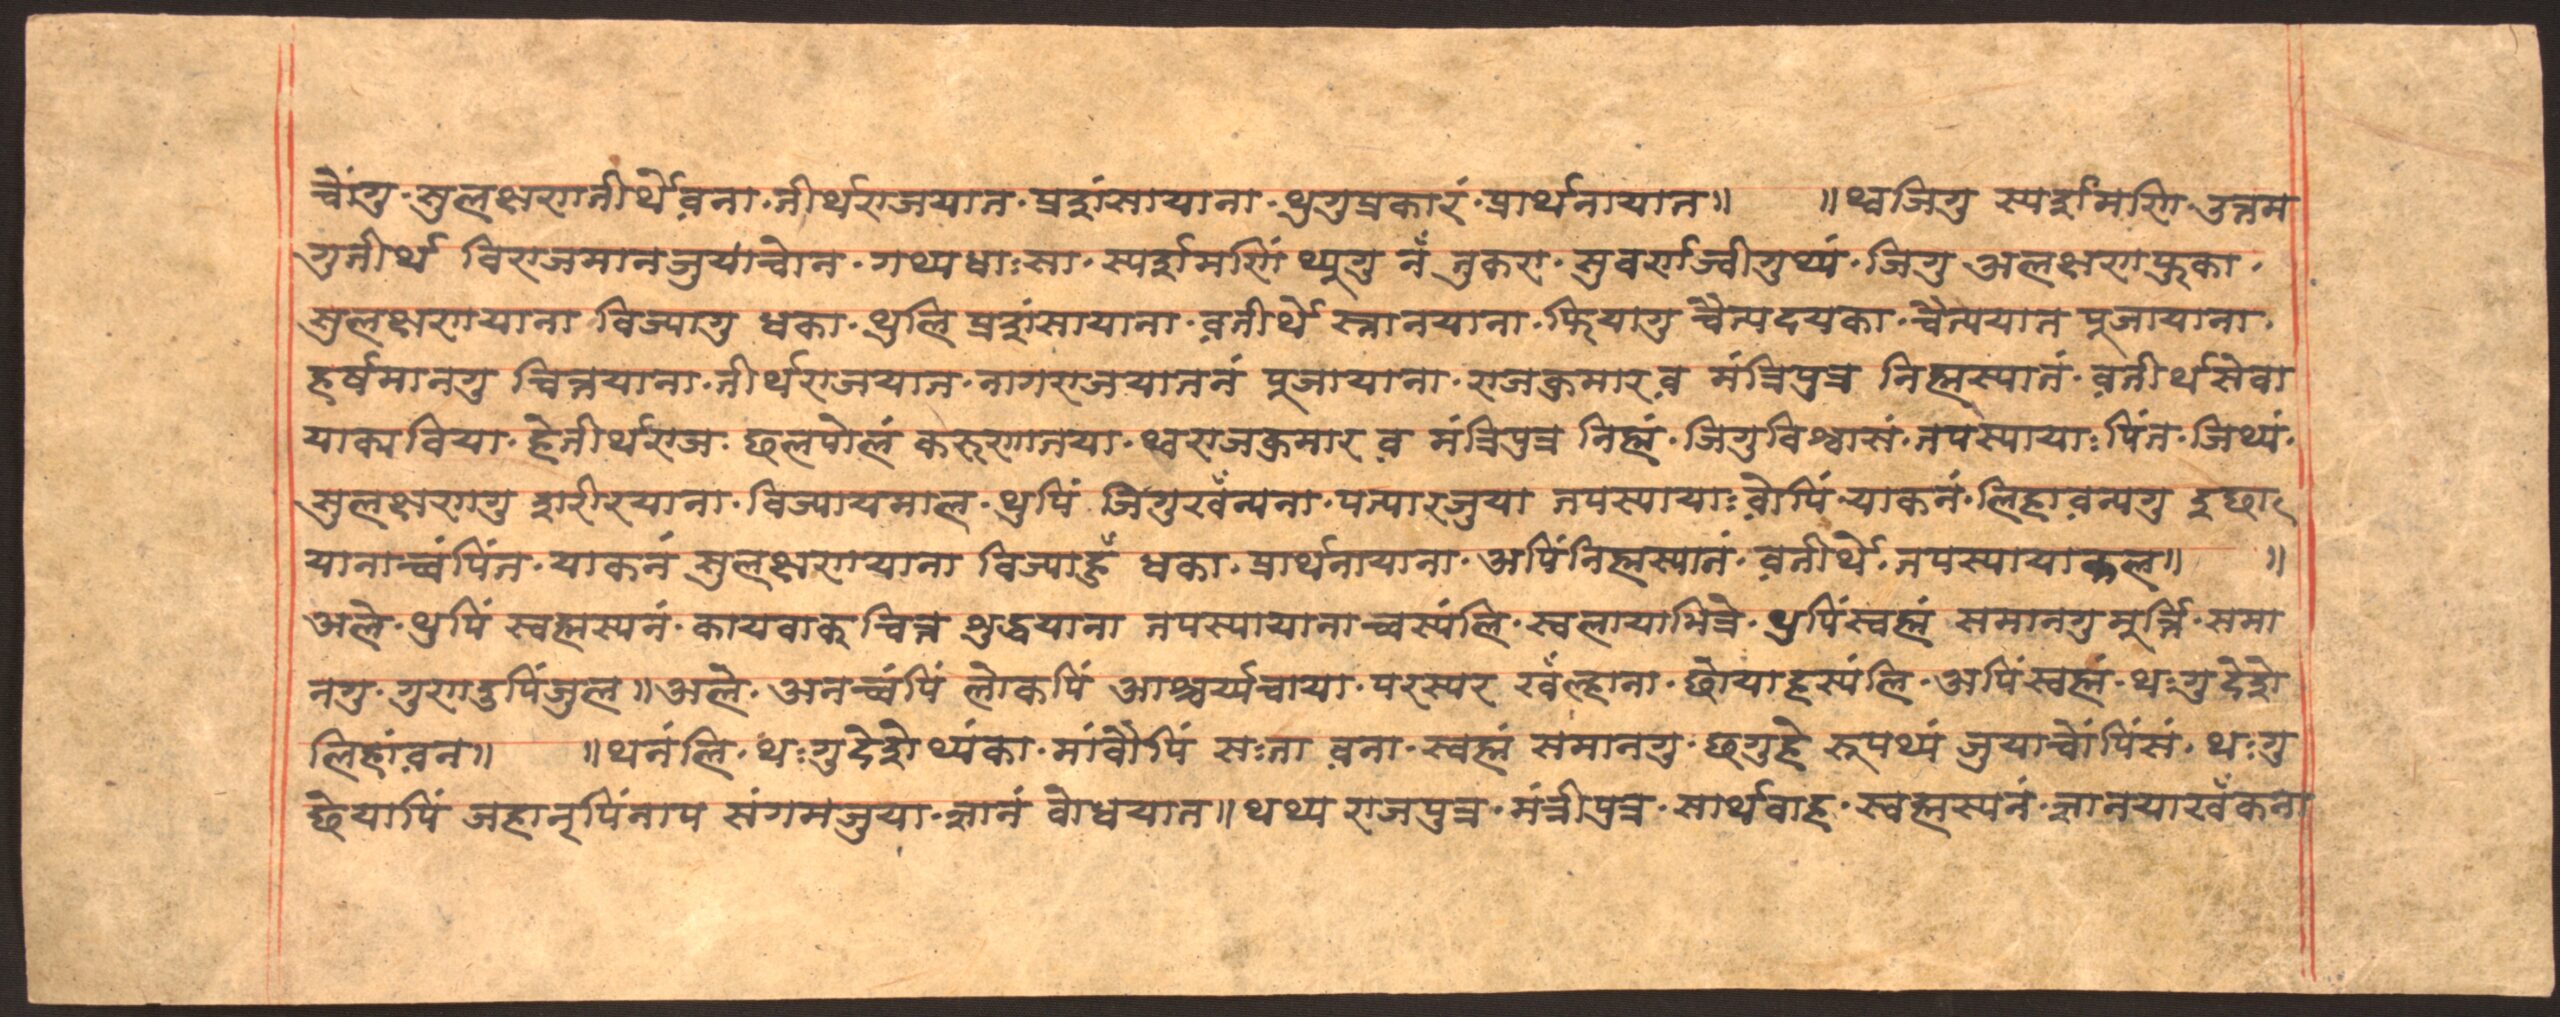 च्वंगु · सुलक्षणतीर्थे व़ना · तीर्थराजयात · प्रशंसायाना · थुगुप्रकारं · प्रार्थनायात॥ ॥थ्वजिगु स्पर्शमणि · उत्तम
गुतीर्थ विराजमानजुयाच्वोन · गथ्यधाःसा · स्पर्शमणिं थ्यूगु नँ तुकरा · सुवर्णाज्वीगुथ्यं · जिगु अलक्षणफुका ·
सुलक्षणयाना विज्यागु धका · थुलि प्रशंसायाना · व़तीर्थे स्नानयाना · फियागु चैत्यदयका · चैत्ययात पूजायाना ·
हर्षमानगु चित्तयाना · तीर्थराजयात · नागराजयातनं पूजायाना · राजकुमार व़ मंत्रिपुत्र निह्मस्यानं · व़तीर्थसेवा
याक्यविया · हेतीर्थराज · छलपोलं करूणातया · थ्वराजकुमार व़ मंत्रिपुत्र निह्मं · जिगुविश्वासं · तपस्यायाःपिंत · जिथ्यं ·
सुलक्षणगु शरीरयाना · विज्यायमाल · थुपिं जिगुखँन्यना · पत्यारजुया तपस्यायाःव़ोपिं · याकनं · लिहाव़न्यगु इछा
यानाच्वंपिंत · याकनं सुलक्षणयाना विज्याहुँ धका · प्रार्थनायाना · अपिंनिह्मस्यानं · व़तीर्थे · तपस्यायाकल॥ ॥
अले · थुपिं स्वह्मस्यनं · कायवाक्चित्त शुद्धयाना तपस्यायाना च्वस्यंलि · स्वलायाभित्रे · थुपिंस्वह्मं समानगुमूर्त्ति · समा
नगु · गुणदुपिंजुल॥अले · अनच्वंपिं लोकपिं आश्चर्य्यचाया · परस्पर खँल्हाना · छोयाहस्यंलि · अपिंस्वह्मं · थःगुदेशे
लिहांव़न॥ ॥थनंलि · थःगुदेशे थ्यंका · मांवौपिं सःता व़ना · स्वह्मं समानगु · छगुहे रूपथ्यं जुयाच्वोंपिंसं · थःगु
छेयापिं जहान्पिंनाप संगमजुया · ज्ञानं वोधयात॥थथ्य राजपुत्र · मंत्रीपुत्र · सार्थवाह · स्वह्मस्यनं · ज्ञानयाखँकना